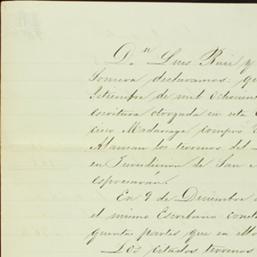 Dn Luis Ruiz y
Somera declaramos, qu
Setiembre de mil ochocien
escritura otorgada en esta
cisco Madariaga compró
Alaman los terrenos del
en Jurisdiccion de San
espresarán.
En 9 de Diciembre
el mismo Escribano
cuantas partes que en ello
Los citados terrenos